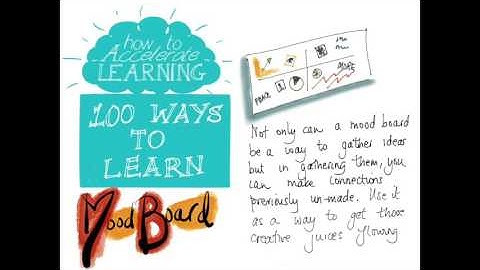 how to
Accelerate
LEARNING
100 WAYS
TO
LEARN
Mood Board
Not only can a mood board
be a way to gather ideas
but in gathering them, you
can make connections
previously un-made. Use it
as a way to get those
creative juices flowing